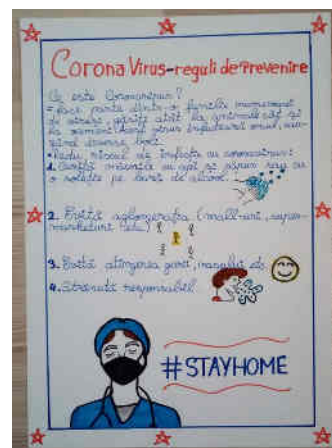 Corona Virus-reguli de Prevenire
Ce este Coronavirus?
- face parte dintr-o familie
de virusuri, găsite atât la animale cât și
la oameni. Unii virus infectează omul,
diverse boli.
- Redu riscul de infecție cu coronavirus:
1. Curăță mâinile cu apă și săpun sau cu
o soluție pe bază de alcool.
2. Evită aglomerația (mall-uri, super-
marketuri etc.)
3. Evită atingerea gurii, nasului etc.
4. Strănută responsabil.
#STAYHOME